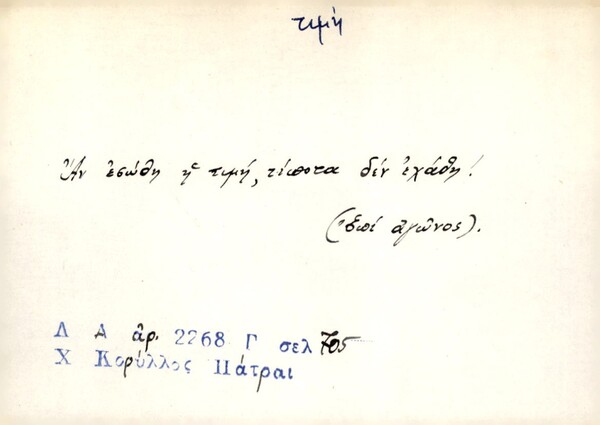 τιμή
Ἂν ἐσώθη ἡ τιμή, τίποτα δὲν ἐχάθη!
(ἐπί ἀγῶνος).
Λ Α ἀρ. 2268 Γ σελ 705
Χ Κορύλλος Πάτραι